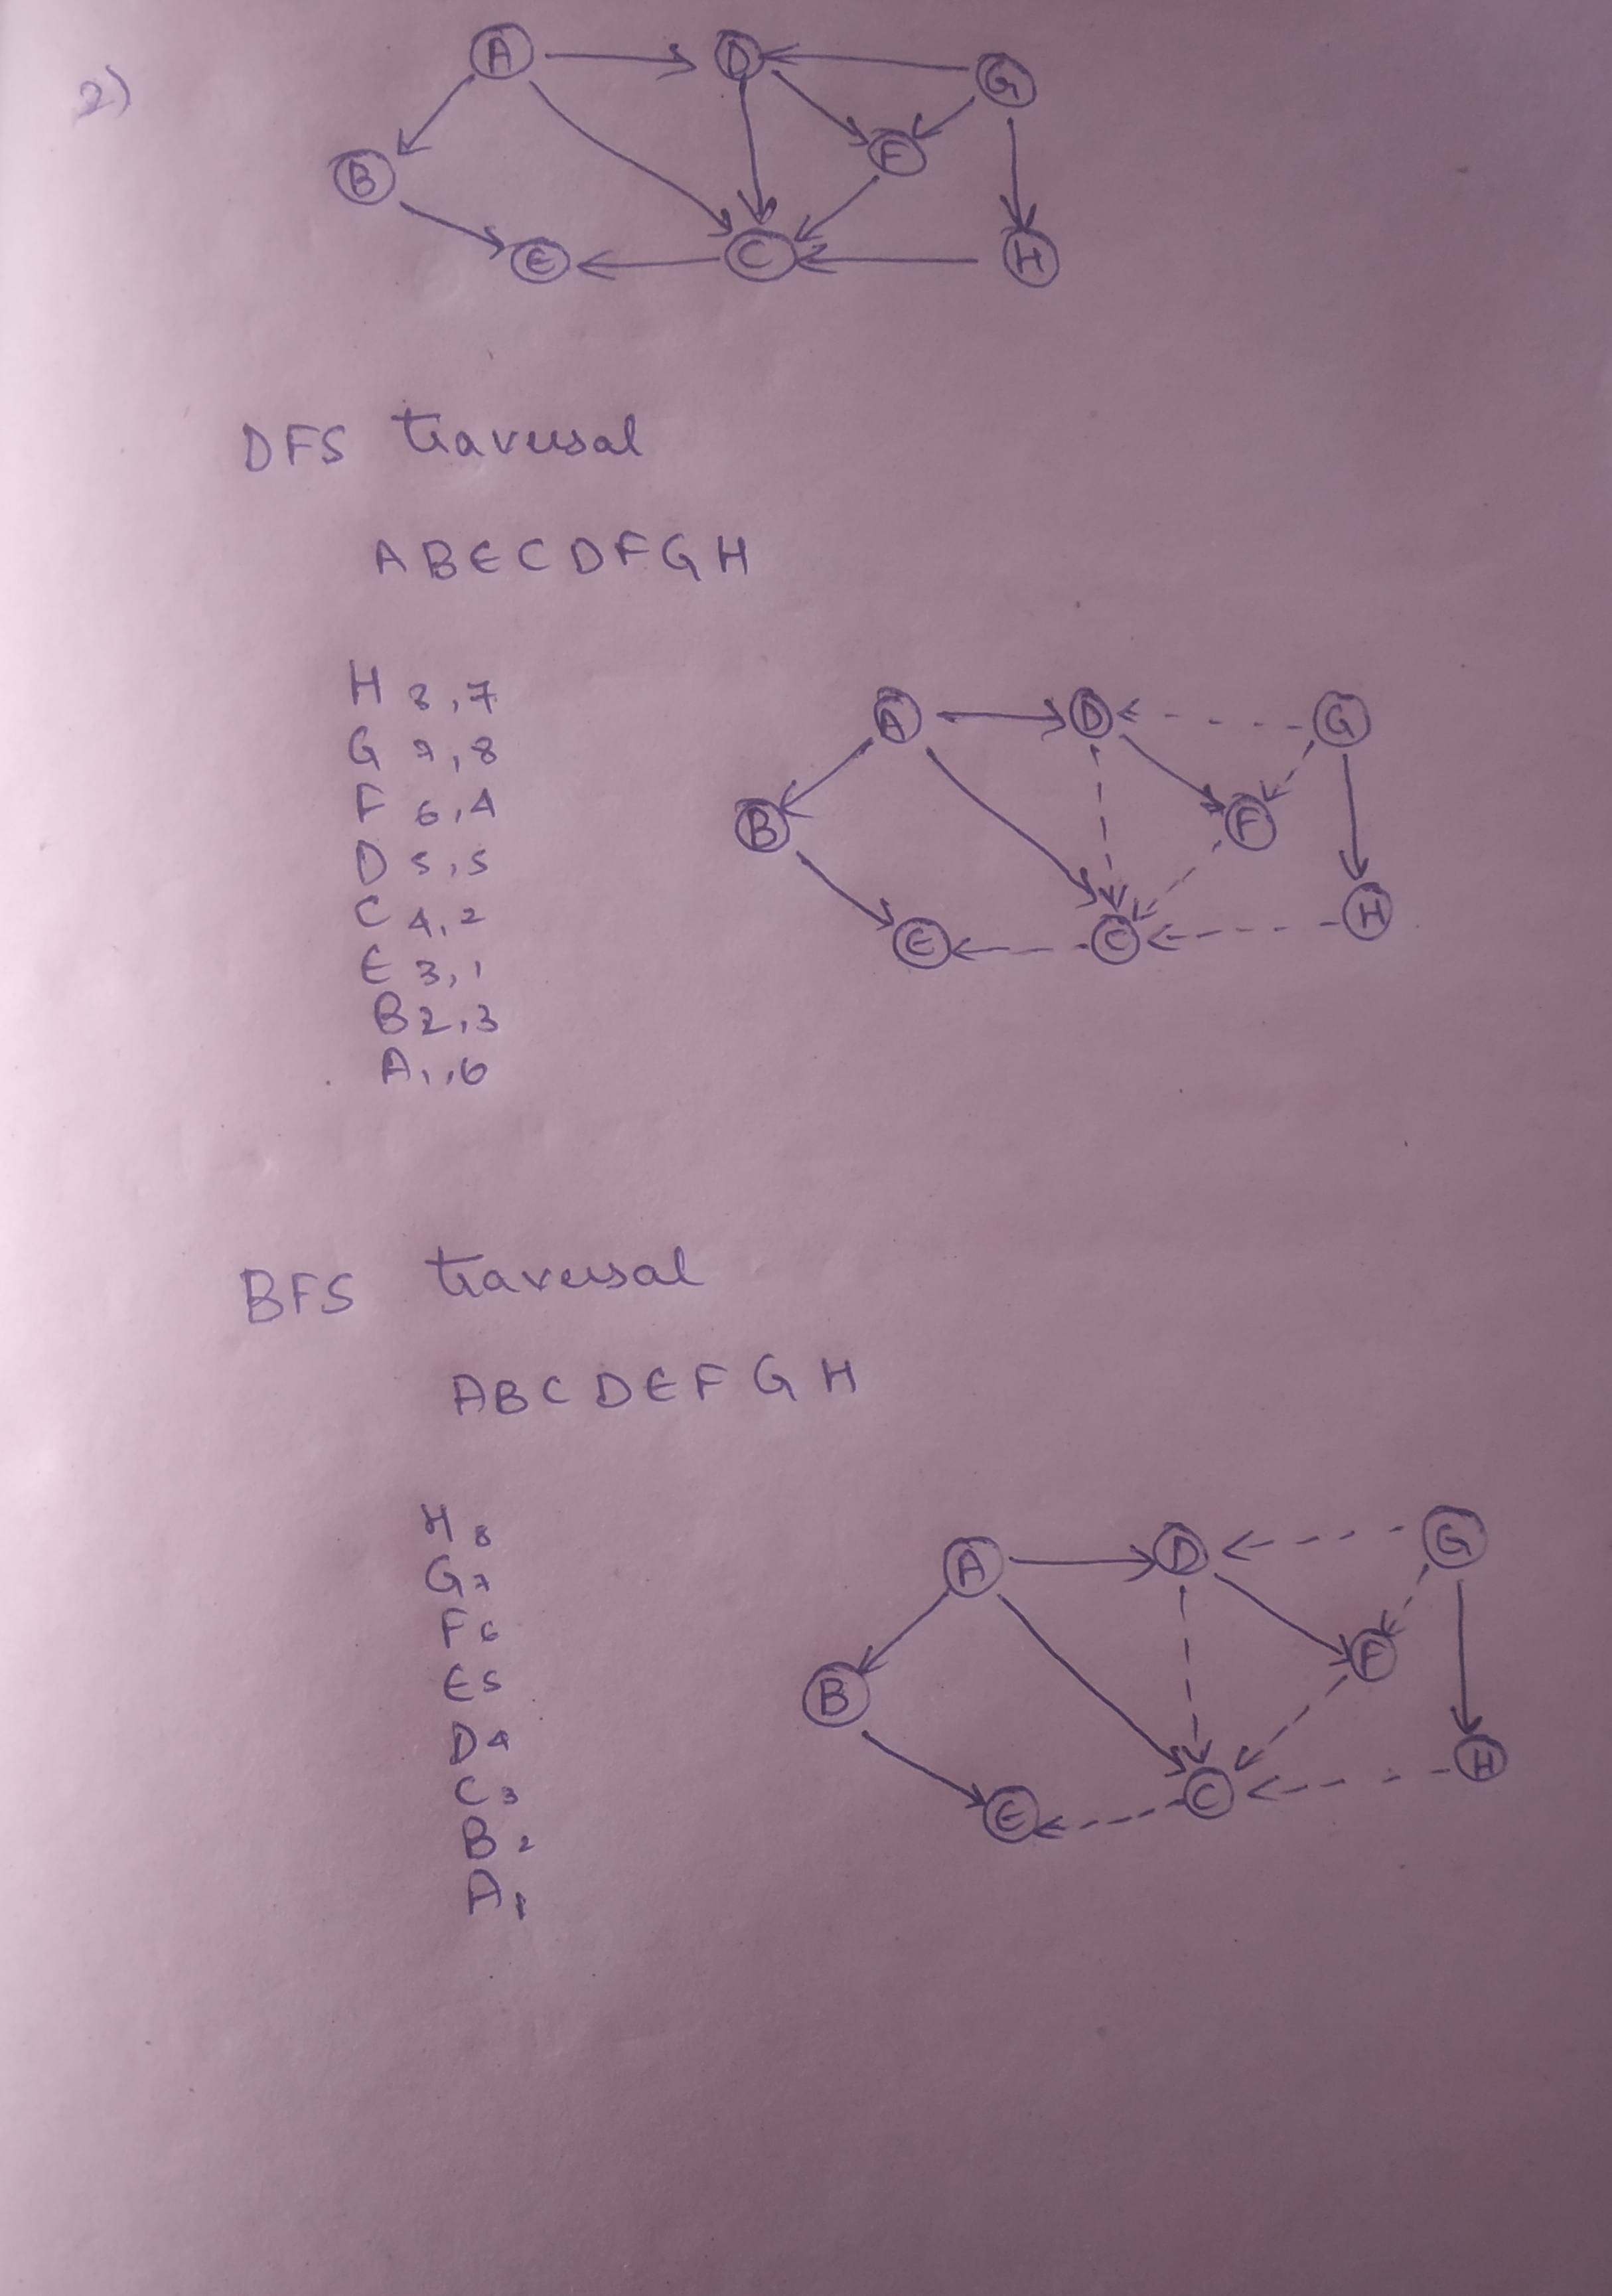 2)
A D G
B F
E C H
DFS traversal
A B E C D F G H
H 8,7
G 7,8
F 6,4
D 5,5
C 4,2
E 3,1
B 2,3
A 1,6
A D G
B F
E C H
BFS traversal
A B C D E F G H
H 8
G 7
F 6
E 5
D 4
C 3
B 2
A 1
A D G
B F
E C H